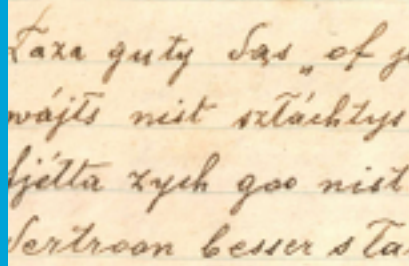 Taza guty Das „ of j
wájts nist sztáchtys
fjétta zych goo nist
Vertroon besser s Ta